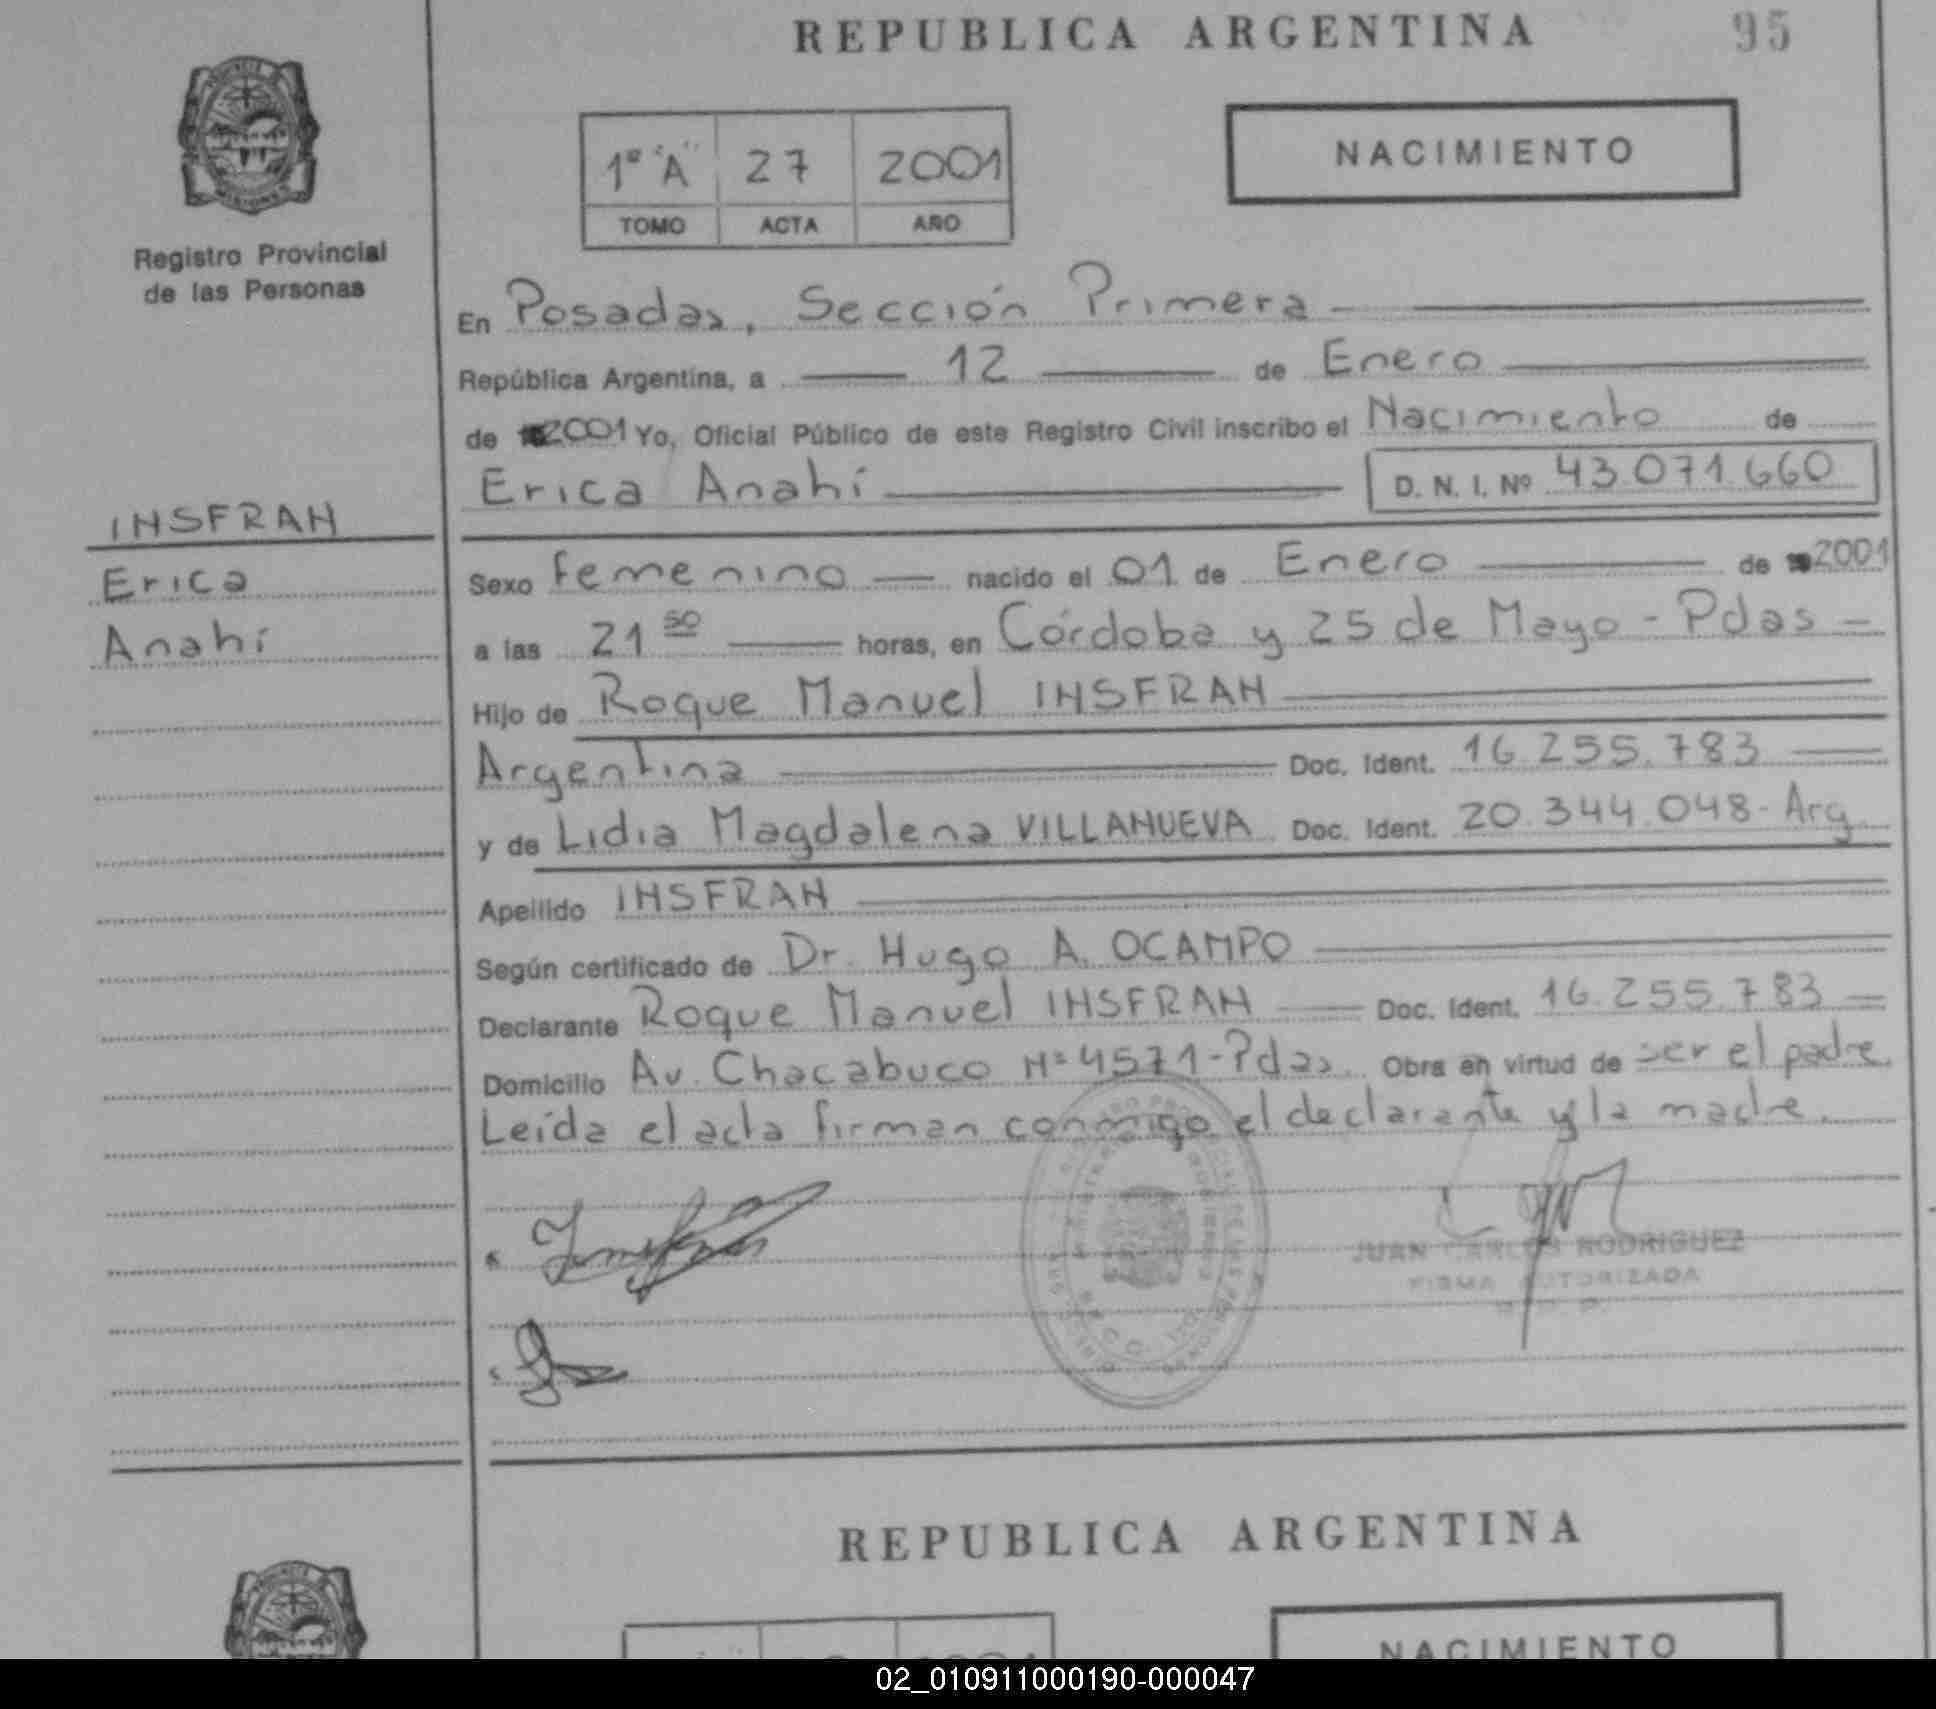 REPUBLICA ARGENTINA 95
1º "A" 27 2001
TOMO ACTA AÑO
NACIMIENTO
Registro Provincial
de las Personas
En Posadas, Sección Primera
República Argentina, a 12 de Enero
de 2001 Yo, Oficial Público de este Registro Civil inscribo el Nacimiento de
Erica Anahí D. N. I. Nº 43.071.660
INSFRAN
Erica
Anahí
Sexo femenino nacido el 01 de Enero de 2001
a las 21 50 horas, en Córdoba y 25 de Mayo - Pdas
Hijo de Roque Manuel INSFRAN
Argentina Doc. Ident. 16.255.783
y de Lidia Magdalena VILLANUEVA Doc. Ident. 20.344.048 - Arg.
Apellido INSFRAN
Según certificado de Dr. Hugo A. OCAMPO
Declarante Roque Manuel INSFRAN Doc. Ident. 16.255.783
Domicilio Av. Chacabuco Nº 4571 - Pdas. Obra en virtud de ser el padre.
Leída el acta firman conmigo el declarante y la madre.
JUAN CARLOS RODRIGUEZ
FIRMA AUTORIZADA
REPUBLICA ARGENTINA
NACIMIENTO
02_010911000190-000047